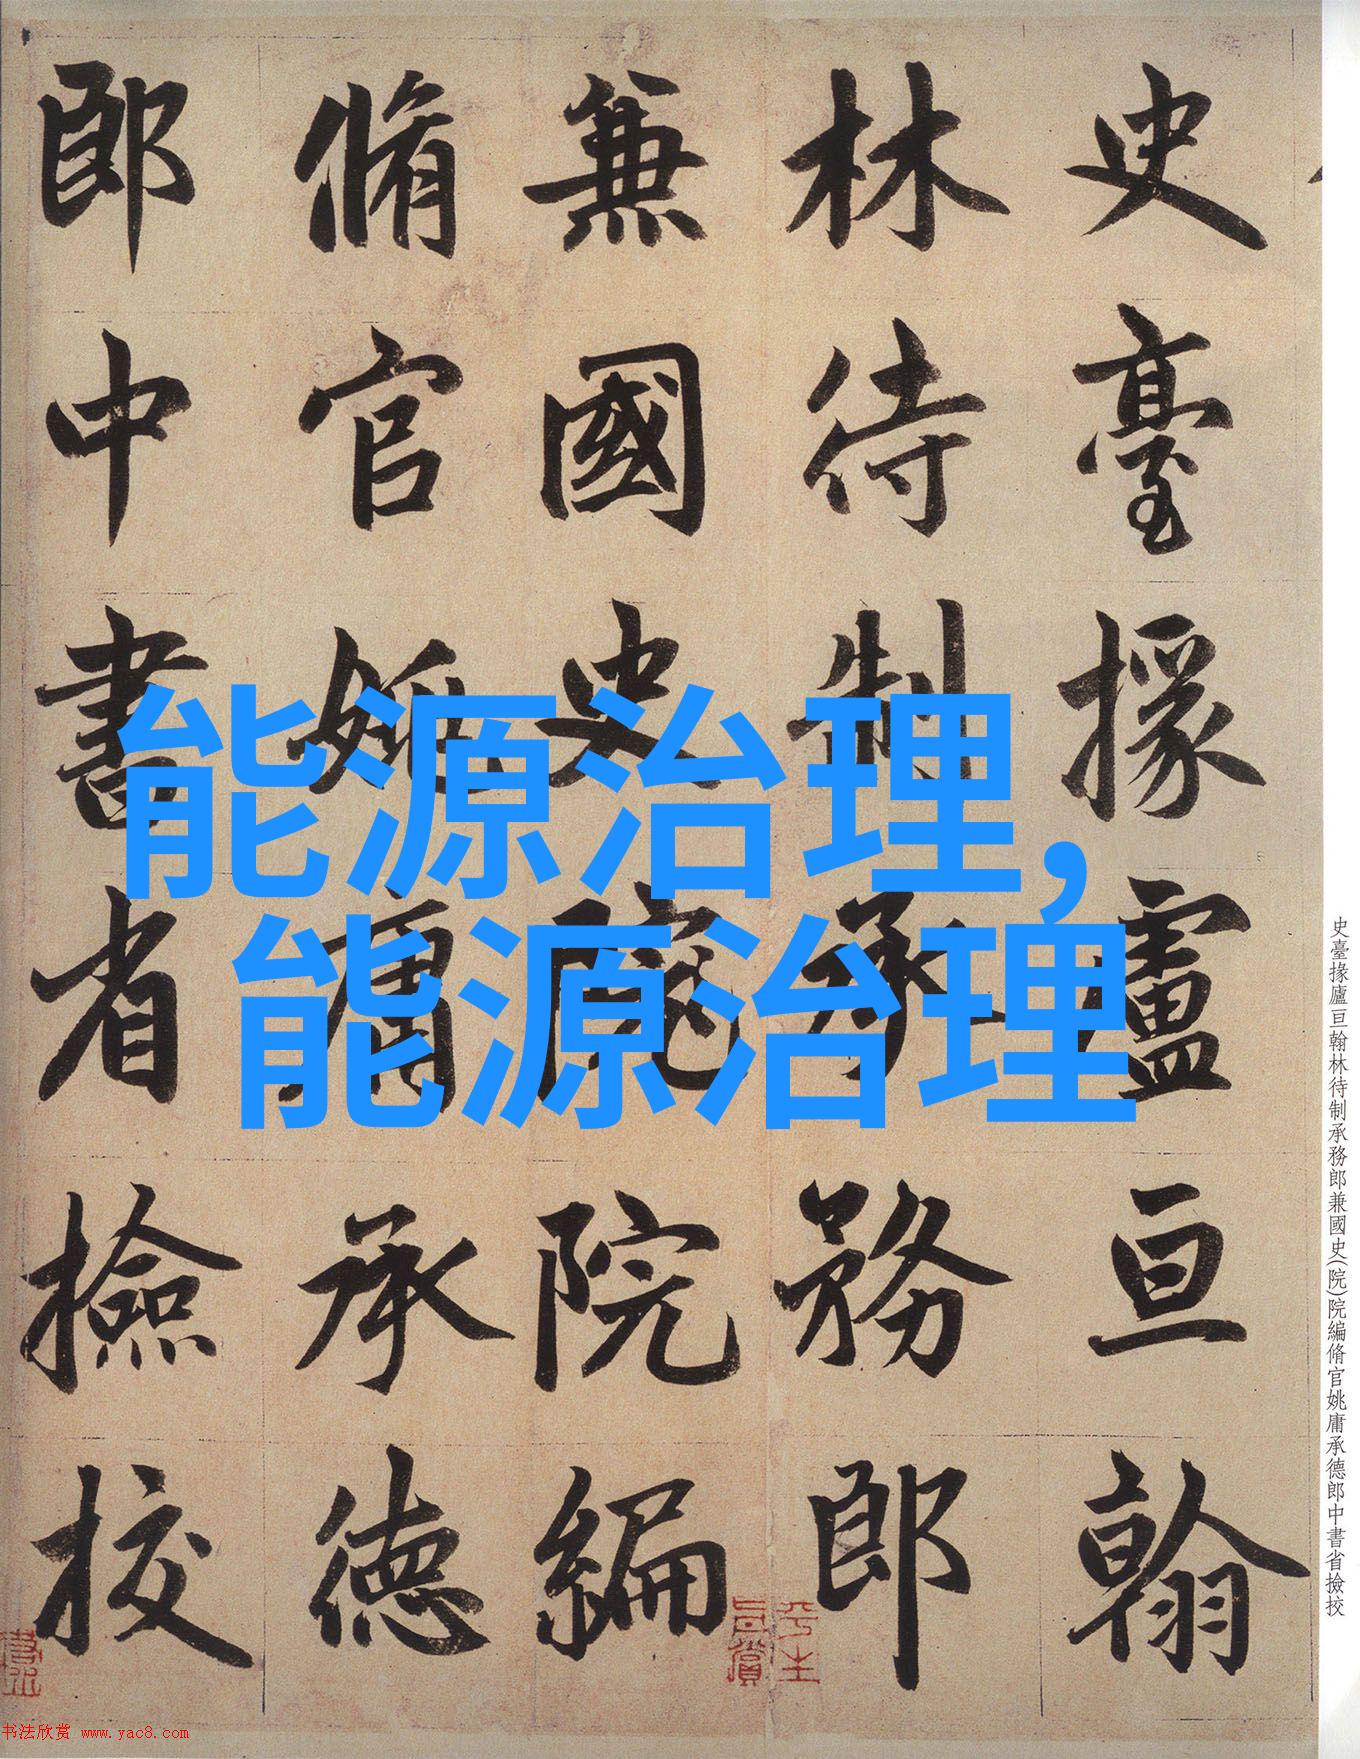 史臺掾盧亘翰
林待制承務郎
兼國史院院編
脩官姚庸承德
郎中書省撿挍
能源治理,
能源治理
史臺掾廬亘翰林待制承務郎兼國史(院)院編脩官姚庸承德郎中書省撿挍
平生
书法欣赏 www.yac8.com